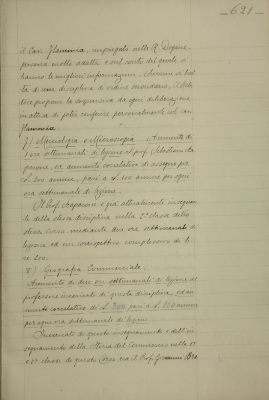 — 621 —
il Cav. Flammia, impiegato nelle R. Dogane,
persona molto adatta e sul conto del quale si
hanno le migliori informazioni.
ta di una disciplina di ordine secondario, il
propone la sospensiva da ogni deliberazione
in attesa di poter conferire personalmente col Cav.
Flammia.
7) Merciologia e Microscopia. Aumento di
ore settimanali di lezione al prof.
ed aumento correlativo di assegno per
L. 200 annue, pari a L. 100 annue per ogni
ora settimanale di lezione.
Il Prof. è già attualmente insegnante
della stessa disciplina nella 2ª classe dello
stesso Corso mediante due ore settimanali di
lezione ed un corrispettivo complessivo di li
re 200.
8) Geografia Commerciale.
Aumento di due ore settimanali di lezione al
professore incaricato di questa disciplina, ed au
mento correlativo di L. 200 pari a L. 100 annue
per ogni ora settimanale di lezione.
Incaricato di questo insegnamento e dell'in
segnamento della Storia del Commercio nella 1ª
e 2ª classe di questo Corso era il Prof. Giovanni